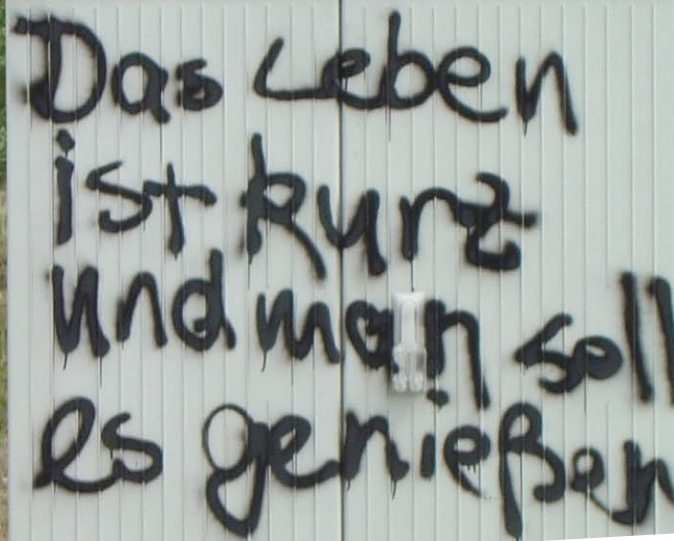 Das Leben
ist kurz
und man soll
es genießen